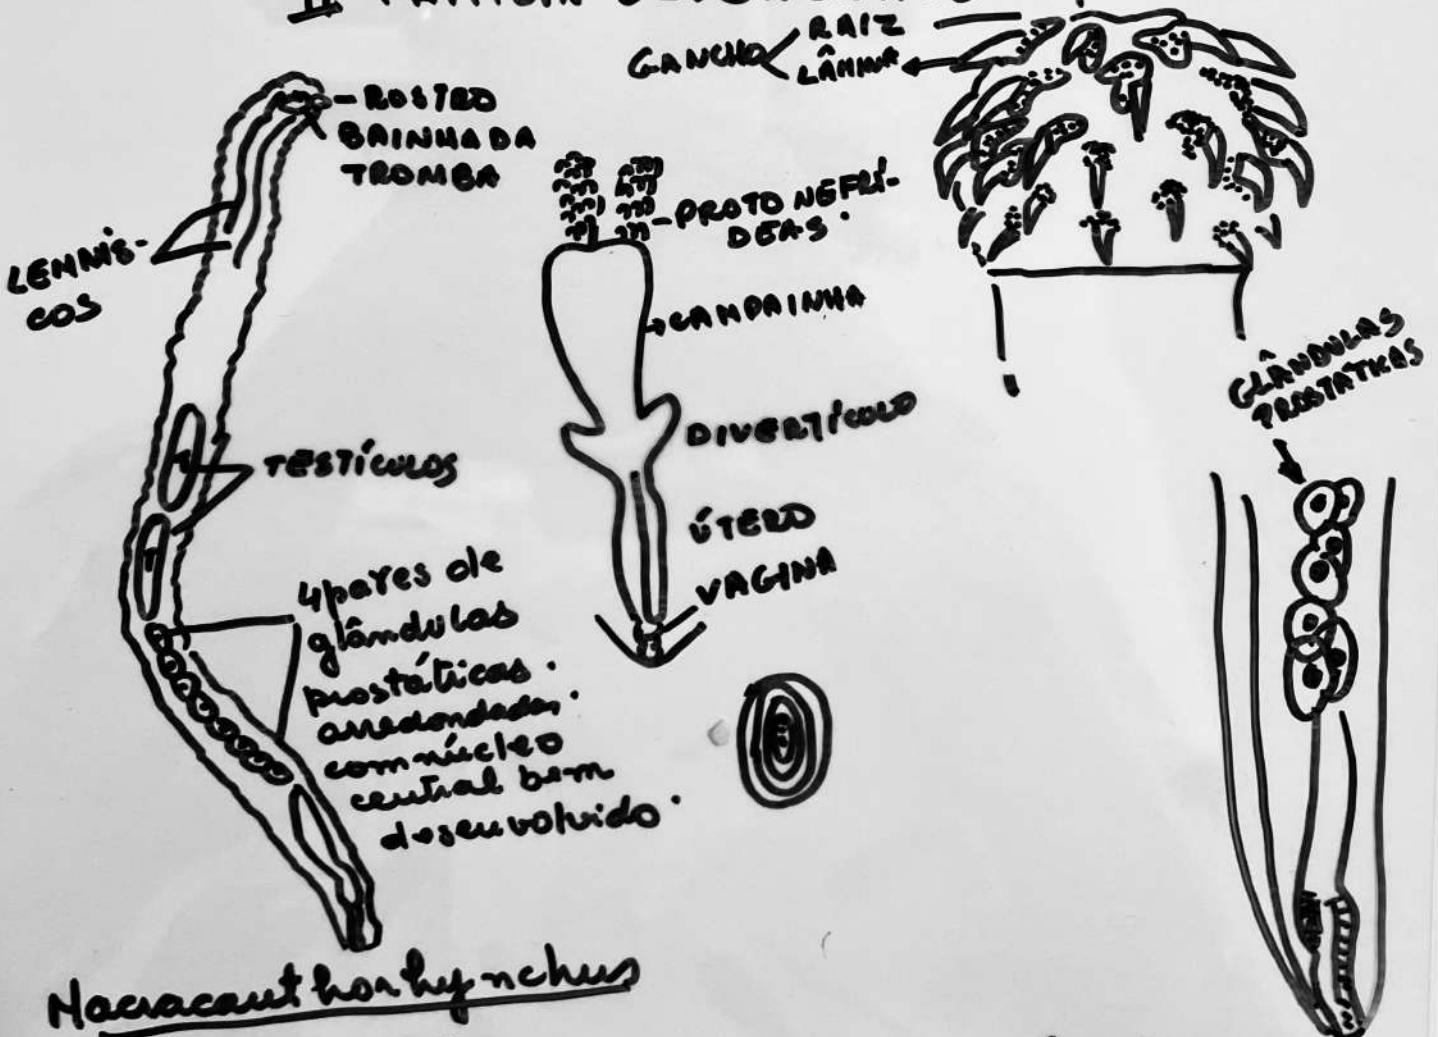 II
GANCHO
RAIZ
LÂMINA
ROSTRO
BAINHA DA
TROMBA
LEMNIS-
COS
PROTO NEFRÍ-
DEAS.
CAMPAINHA
DIVERTÍCULO
TESTÍCULOS
ÚTERO
VAGINA
4 pares de
glândulas
prostáticas.
arredondadas.
com núcleo
central bem
desenvolvido.
GLÂNDULAS
PROSTÁTICAS
Macracanthorhynchus